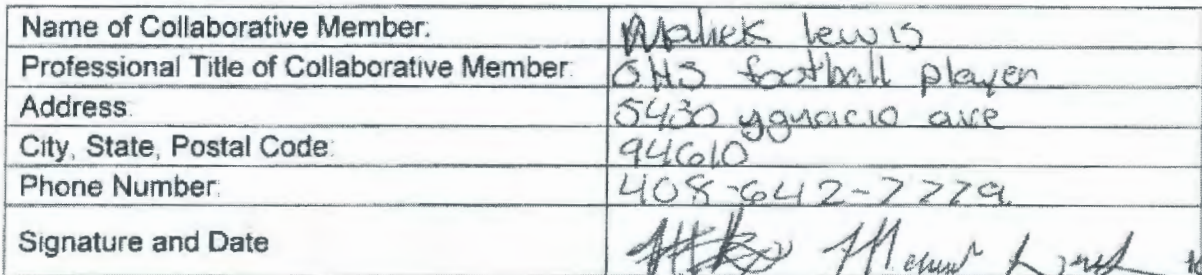 Name of Collaborative Member: Maliek lewis
Professional Title of Collaborative Member: OHS football player
Address: 5430 ygnacio ave
City, State, Postal Code: 94610
Phone Number: 408-642-7779
Signature and Date